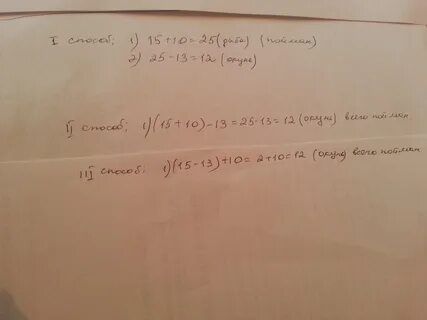 I способ; 1) 15+10=25 (рыба) (поймал)
2) 25-13=12 (окуне)
II способ; 1) (15+10)-13=25-13=12 (окуне) всего поймал
III способ; 1) (15-13)+10=2+10=12 (окуне) всего поймал